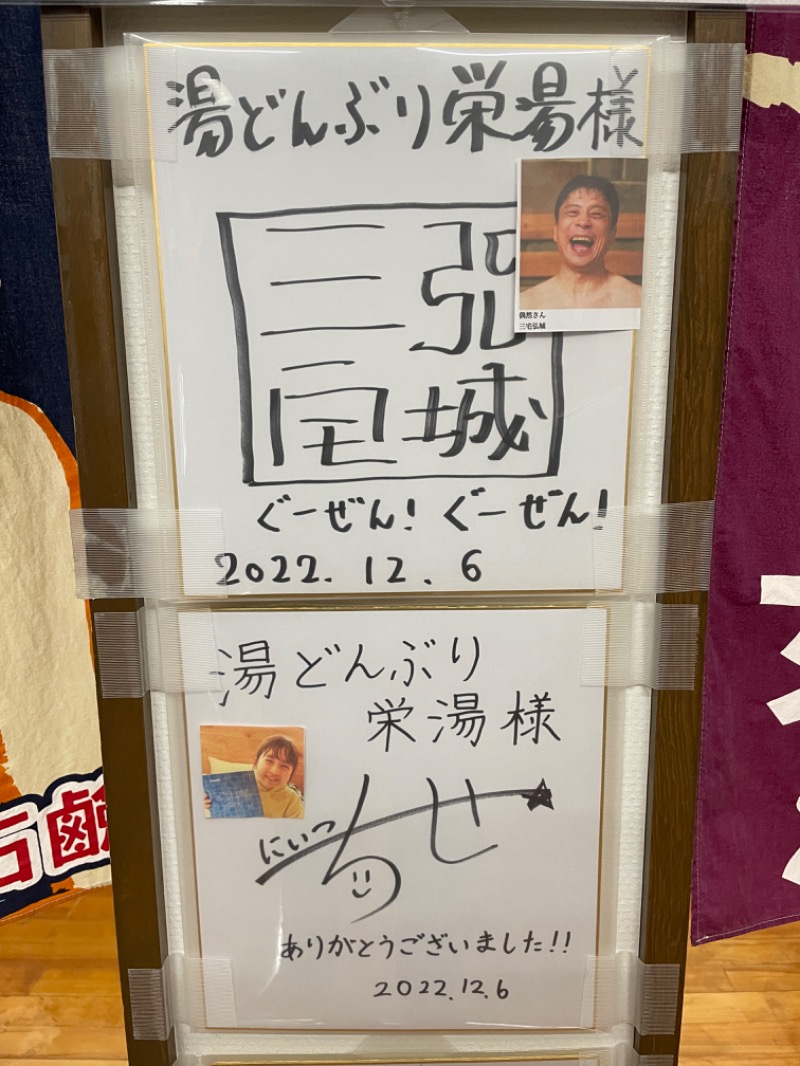 湯どんぶり栄湯様
三宅
弘城
偶然さん
三宅弘城
ぐーぜん! ぐーぜん!
2022.12.6
湯どんぶり
栄湯様
にいつ
ちせ
ありがとうございました!!
2022.12.6
石鹸